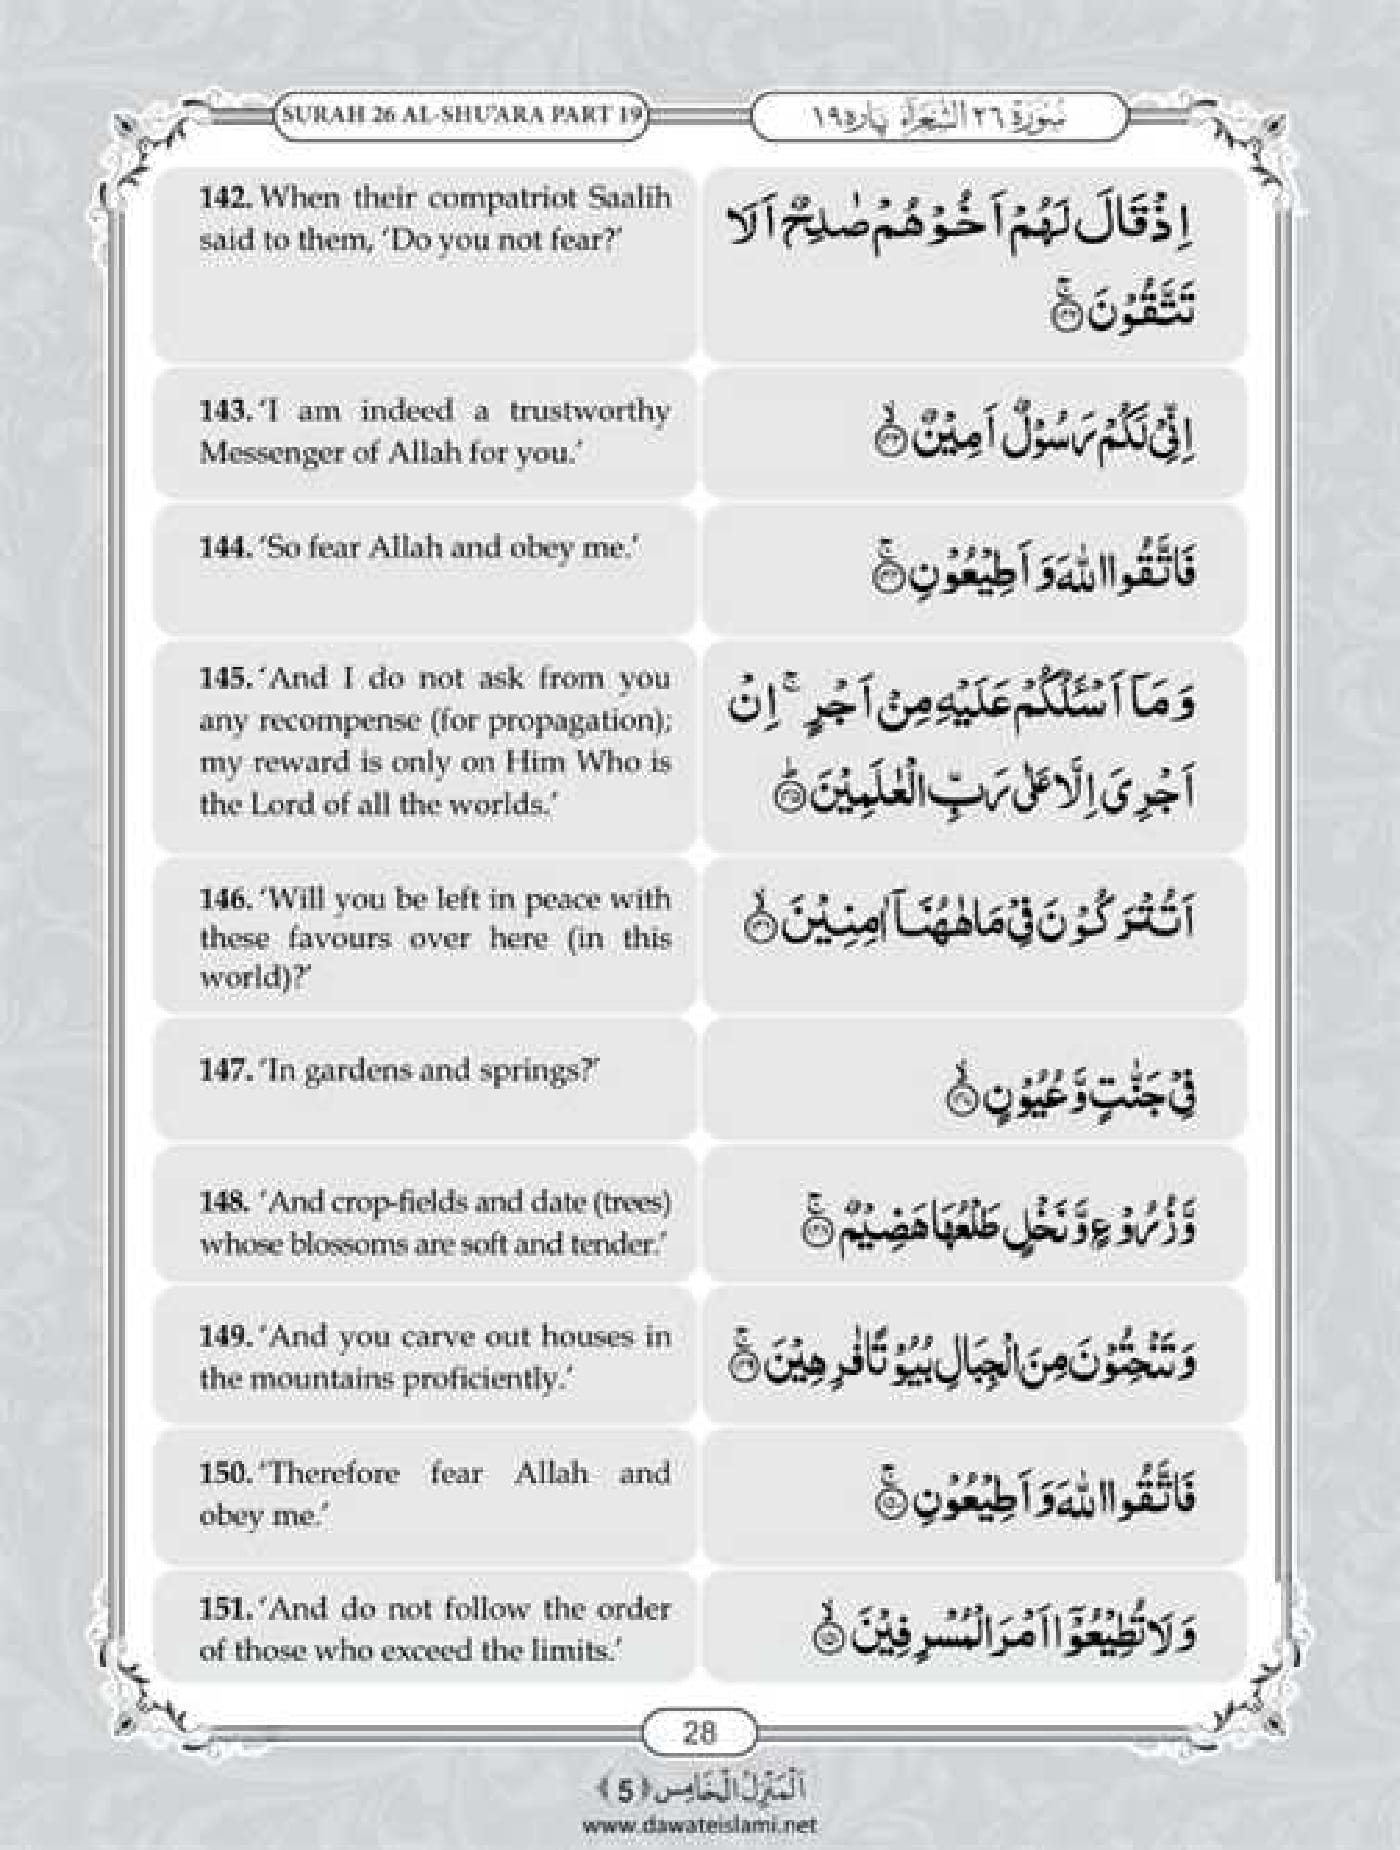 SURAH 26 AL-SHU'ARA PART 19
سُوْرَةُ ٢٦ الشُّعَرَآء پاره ١٩
142. When their compatriot Saalih
said to them, 'Do you not fear?'
اِذْ قَالَ لَهُمْ اَخُوْهُمْ صٰلِحٌ اَلَا
تَتَّقُوْنَ ۚ﴿۱۴۲﴾
143. 'I am indeed a trustworthy
Messenger of Allah for you.'
اِنِّیْ لَكُمْ رَسُوْلٌ اَمِیْنٌ ۙ﴿۱۴۳﴾
144. 'So fear Allah and obey me.'
فَاتَّقُوا اللّٰهَ وَ اَطِیْعُوْنِ ۚ﴿۱۴۴﴾
145. 'And I do not ask from you
any recompense (for propagation);
my reward is only on Him Who is
the Lord of all the worlds.'
وَ مَاۤ اَسْـَٔلُكُمْ عَلَیْهِ مِنْ اَجْرٍ ۚ اِنْ
اَجْرِیَ اِلَّا عَلٰی رَبِّ الْعٰلَمِیْنَ ؕ﴿۱۴۵﴾
146. 'Will you be left in peace with
these favours over here (in this
world)?'
اَتُتْرَكُوْنَ فِیْ مَا هٰهُنَاۤ اٰمِنِیْنَ ۙ﴿۱۴۶﴾
147. 'In gardens and springs?'
فِیْ جَنّٰتٍ وَّ عُیُوْنٍ ۙ﴿۱۴۷﴾
148. 'And crop-fields and date (trees)
whose blossoms are soft and tender.'
وَّ زُرُوْعٍ وَّ نَخْلٍ طَلْعُهَا هَضِیْمٌ ۚ﴿۱۴۸﴾
149. 'And you carve out houses in
the mountains proficiently.'
وَ تَنْحِتُوْنَ مِنَ الْجِبَالِ بُیُوْتًا فٰرِهِیْنَ ۚ﴿۱۴۹﴾
150. 'Therefore fear Allah and
obey me.'
فَاتَّقُوا اللّٰهَ وَ اَطِیْعُوْنِ ۚ﴿۱۵۰﴾
151. 'And do not follow the order
of those who exceed the limits.'
وَ لَا تُطِیْعُوْۤا اَمْرَ الْمُسْرِفِیْنَ ۙ﴿۱۵۱﴾
28
اَلْمَنْزِلُ الْخَامِس ﴿5﴾
www.dawateislami.net